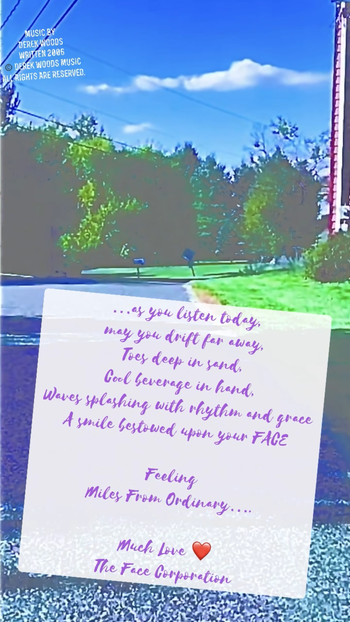 MUSIC BY
DEREK WOODS
WRITTEN 2006
© DEREK WOODS MUSIC
ALL RIGHTS ARE RESERVED.
...as you listen today,
may you drift far away,
Toes deep in sand,
Cool beverage in hand,
Waves splashing with rhythm and grace
A smile bestowed upon your FACE
Feeling
Miles From Ordinary....
Much Love ❤️
The Face Corporation